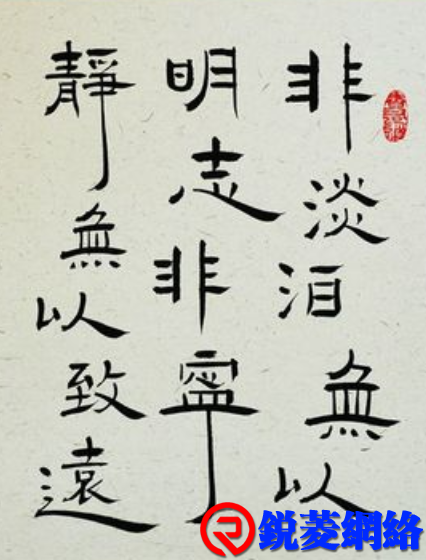 非淡泊無以
明志非寧
靜無以致遠
鋭菱網絡